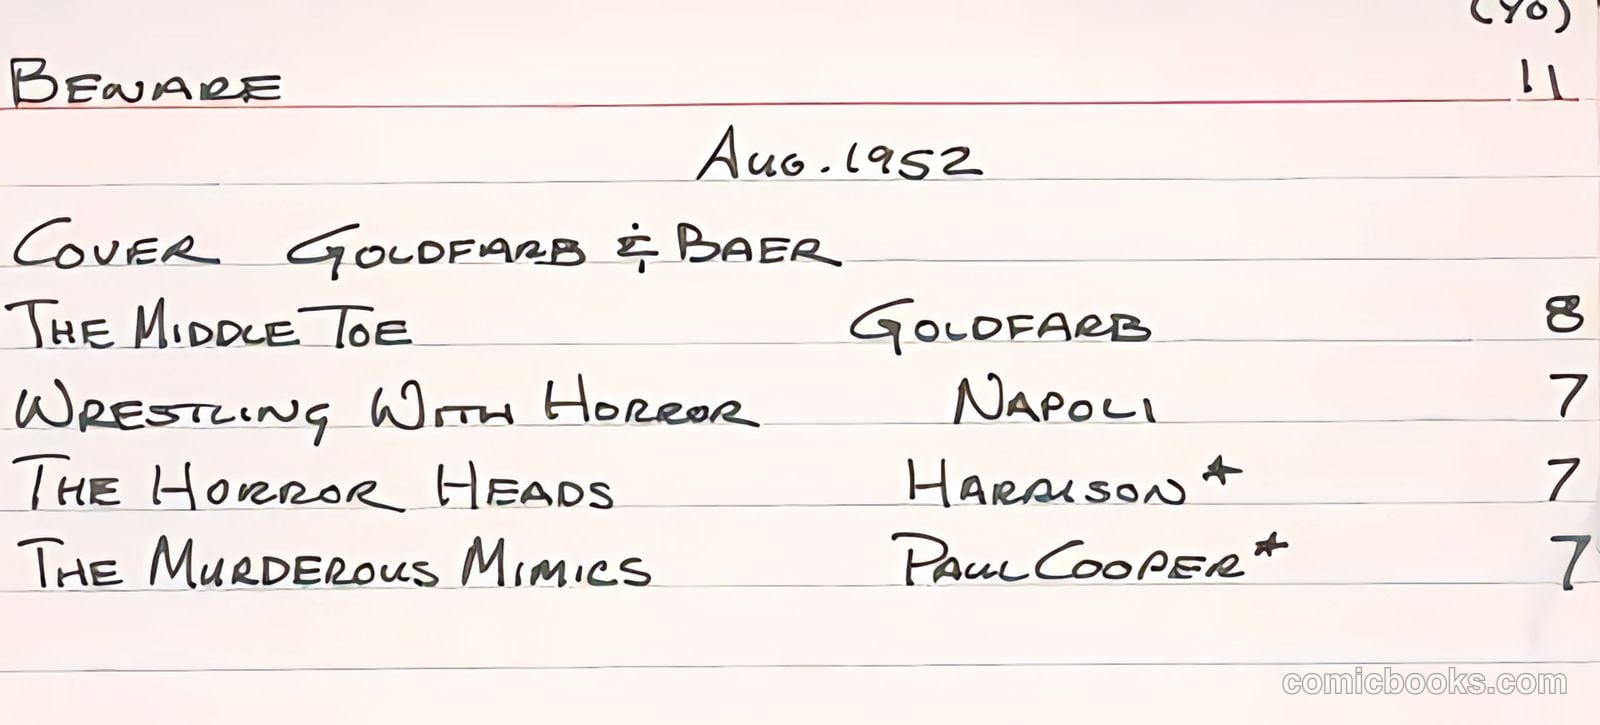 (40)
BEWARE 11
AUG. 1952
COVER GOLDFARB & BAER
THE MIDDLE TOE GOLDFARB 8
WRESTLING WITH HORROR NAPOLI 7
THE HORROR HEADS HARRISON* 7
THE MURDEROUS MIMICS PAUL COOPER* 7
comicbooks.com